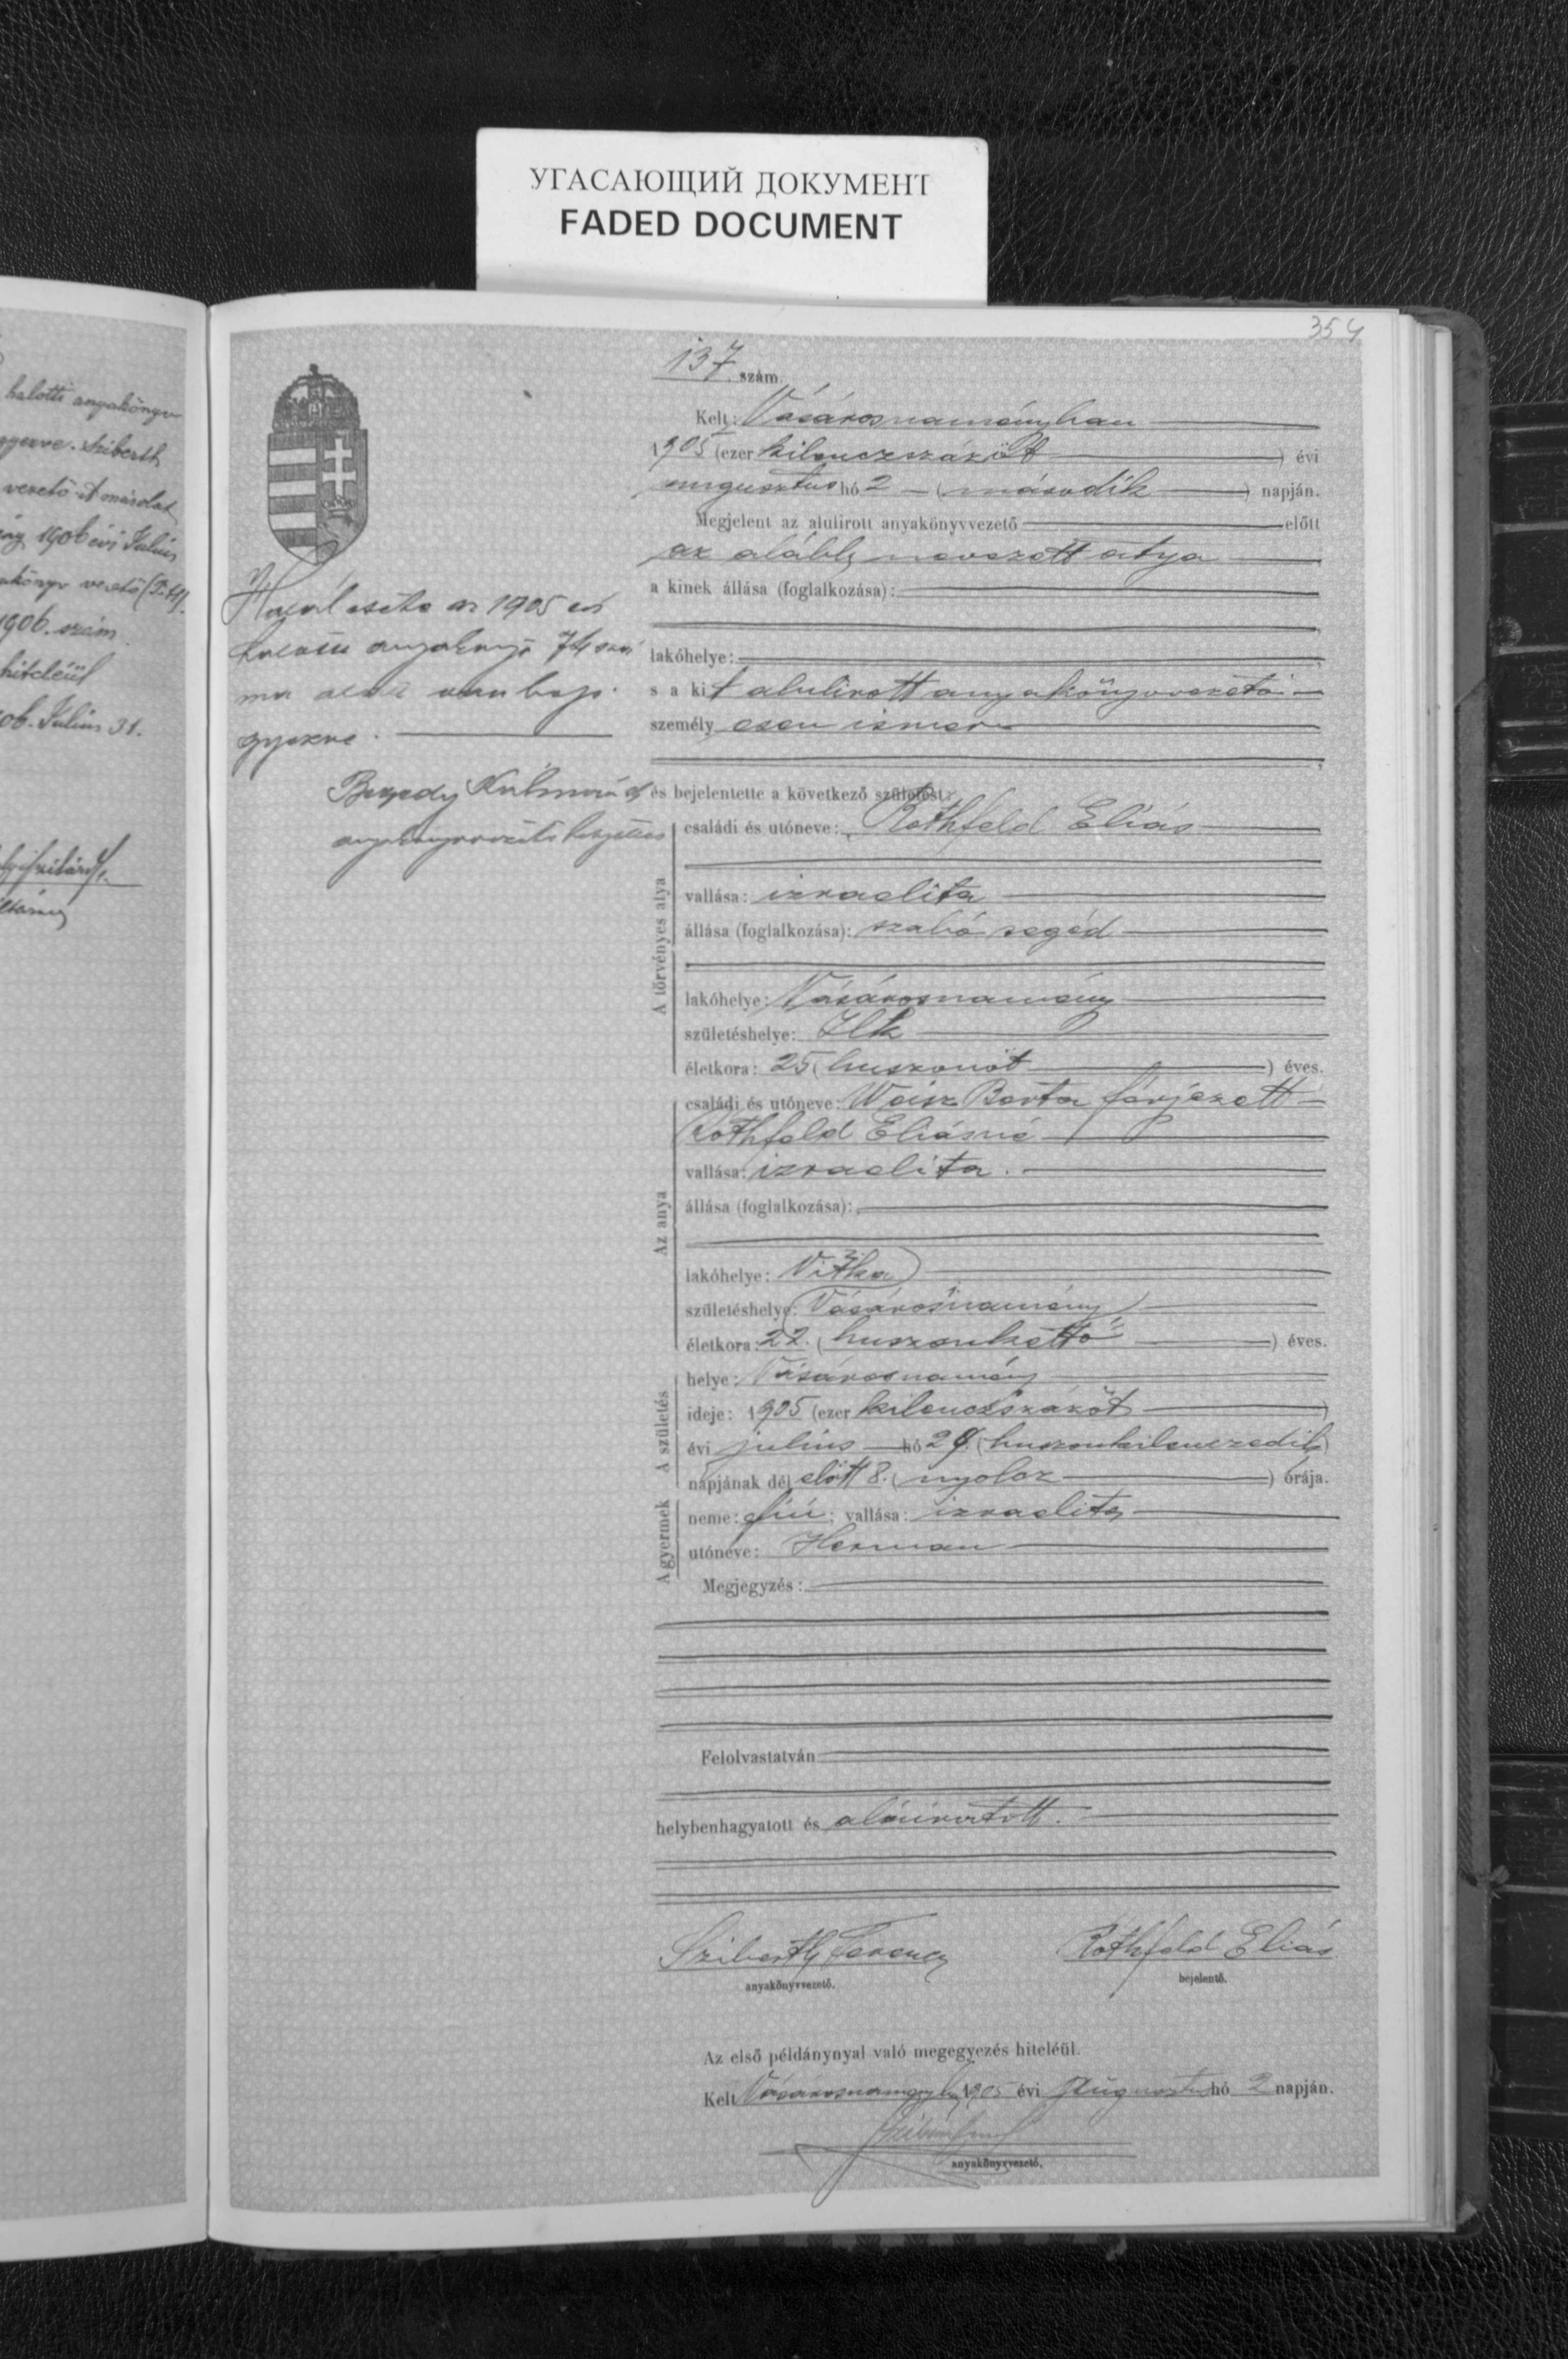 УГАСАЮЩИЙ ДОКУМЕНТ
FADED DOCUMENT
halotti anyakönyv
gyezve. Sziberth
vezető. A másolat
1906 évi Julius
1906. szám
hiteléül
Julius 31.
354
137. szám.
Kelt: Vásárosnaményban
1905 (ezer kilenczszázöt) évi
augusztus hó 2 (második) napján.
Megjelent az alulirott anyakönyvvezető előtt
az alább nevezett atya
a kinek állása (foglalkozása):
lakóhelye:
s a kit alulirott anyakönyvvezető
személyesen ismer
és bejelentette a következő születést:
A törvényes atya
családi és utóneve: Rothfeld Eliás
vallása: izraelita
állása (foglalkozása): szabó segéd
lakóhelye: Vásárosnamény
születéshelye: Ilk
életkora: 25 (huszonöt) éves.
Az anya
családi és utóneve: Weisz Berta férjezett
Rothfeld Eliásné
vallása: izraelita.
állása (foglalkozása):
lakóhelye: Vitka
születéshelye: Vásárosnamény
életkora: 22. (huszonkettő) éves.
A születés
helye: Vásárosnamény
ideje: 1905 (ezer kilenczszázöt)
évi julius hó 29. (huszonkilenczedik)
napjának dél előtt 8. (nyolcz) órája.
A gyermek
neme: fiú; vallása: izraelita
utóneve: Herman
Megjegyzés:
Felolvastatván
helybenhagyatott és aláiratott.
Sziberth Ferencz
anyakönyvvezető.
Rothfeld Eliás
bejelentő.
Az első példánynyal való megegyezés hiteléül.
Kelt Vásárosnamény 1905 évi Augusztus hó 2 napján.
anyakönyvvezető.
Halál esete az 1905 évi
halotti anyakönyv 74 szá
ma alatt van beje
gyezve.
Kálmán
anyakönyvvezető helyettes